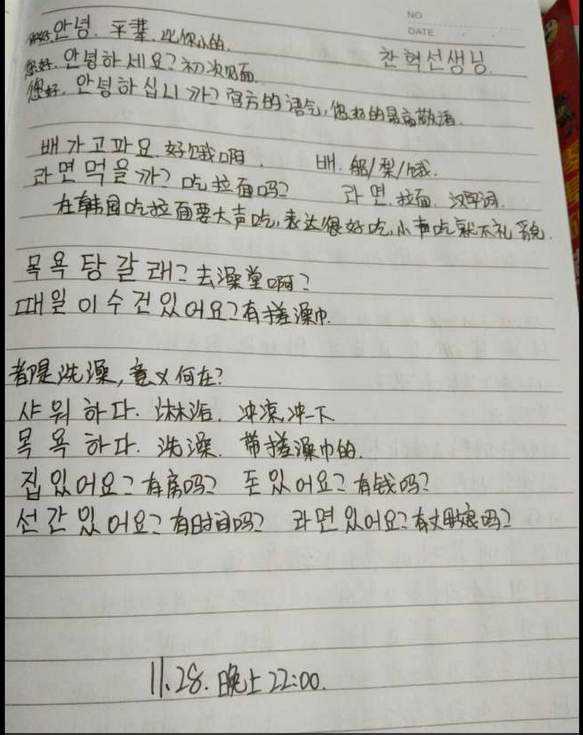 NO.
DATE
你好. 안녕. 平辈. 比你小的.
찬혁선생님
您好. 안녕하세요? 初次见面.
您好. 안녕하십니까? 官方的语气,
배가고파요. 好饿啊. 배. 船/梨/饿.
라면먹을까? 吃拉面吗? 라면. 拉面. 汉字词.
在韩国吃拉面要大声吃, 表达很好吃, 小声吃就不礼貌.
목욕탕갈래? 去澡堂啊?
때밀이수건있어요? 有搓澡巾.
都是洗澡, 意义何在?
샤워하다. 沐浴. 冲凉, 冲下
목욕하다. 洗澡. 带搓澡巾的.
집있어요? 有房吗? 돈있어요? 有钱吗?
선간있어요? 有时间吗? 라면있어요? 有
11.28. 晚上 22:00.